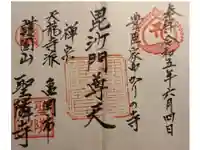 奉拝 令和五年六月四日
豊臣家ゆかりの寺
毘沙門尊天
禅宗
天龍寺派
亀岡市
瑞雲山
聖隣寺